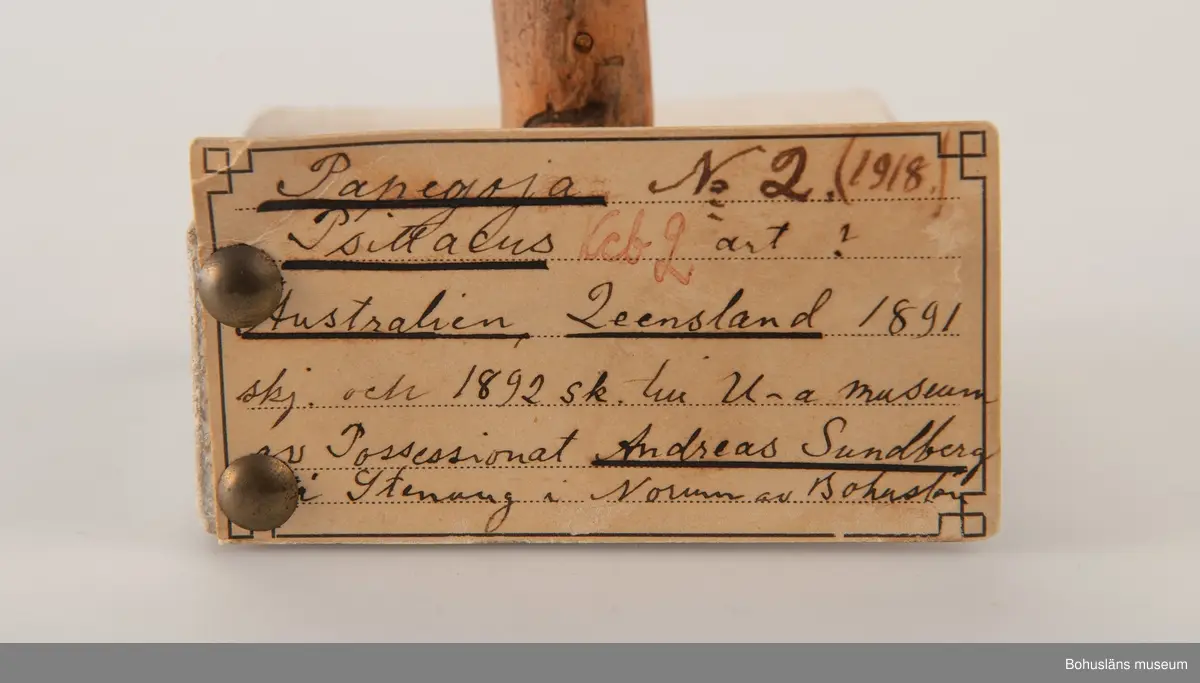 Papegoja No 2. (1918.)
Psittacus art ?
Australien, Qeensland 1891
skj. och 1892 sk. till U-a museum
av Possessionat Andreas Sundberg
i Stenung i Norum av Bohuslän
Bohusläns museum